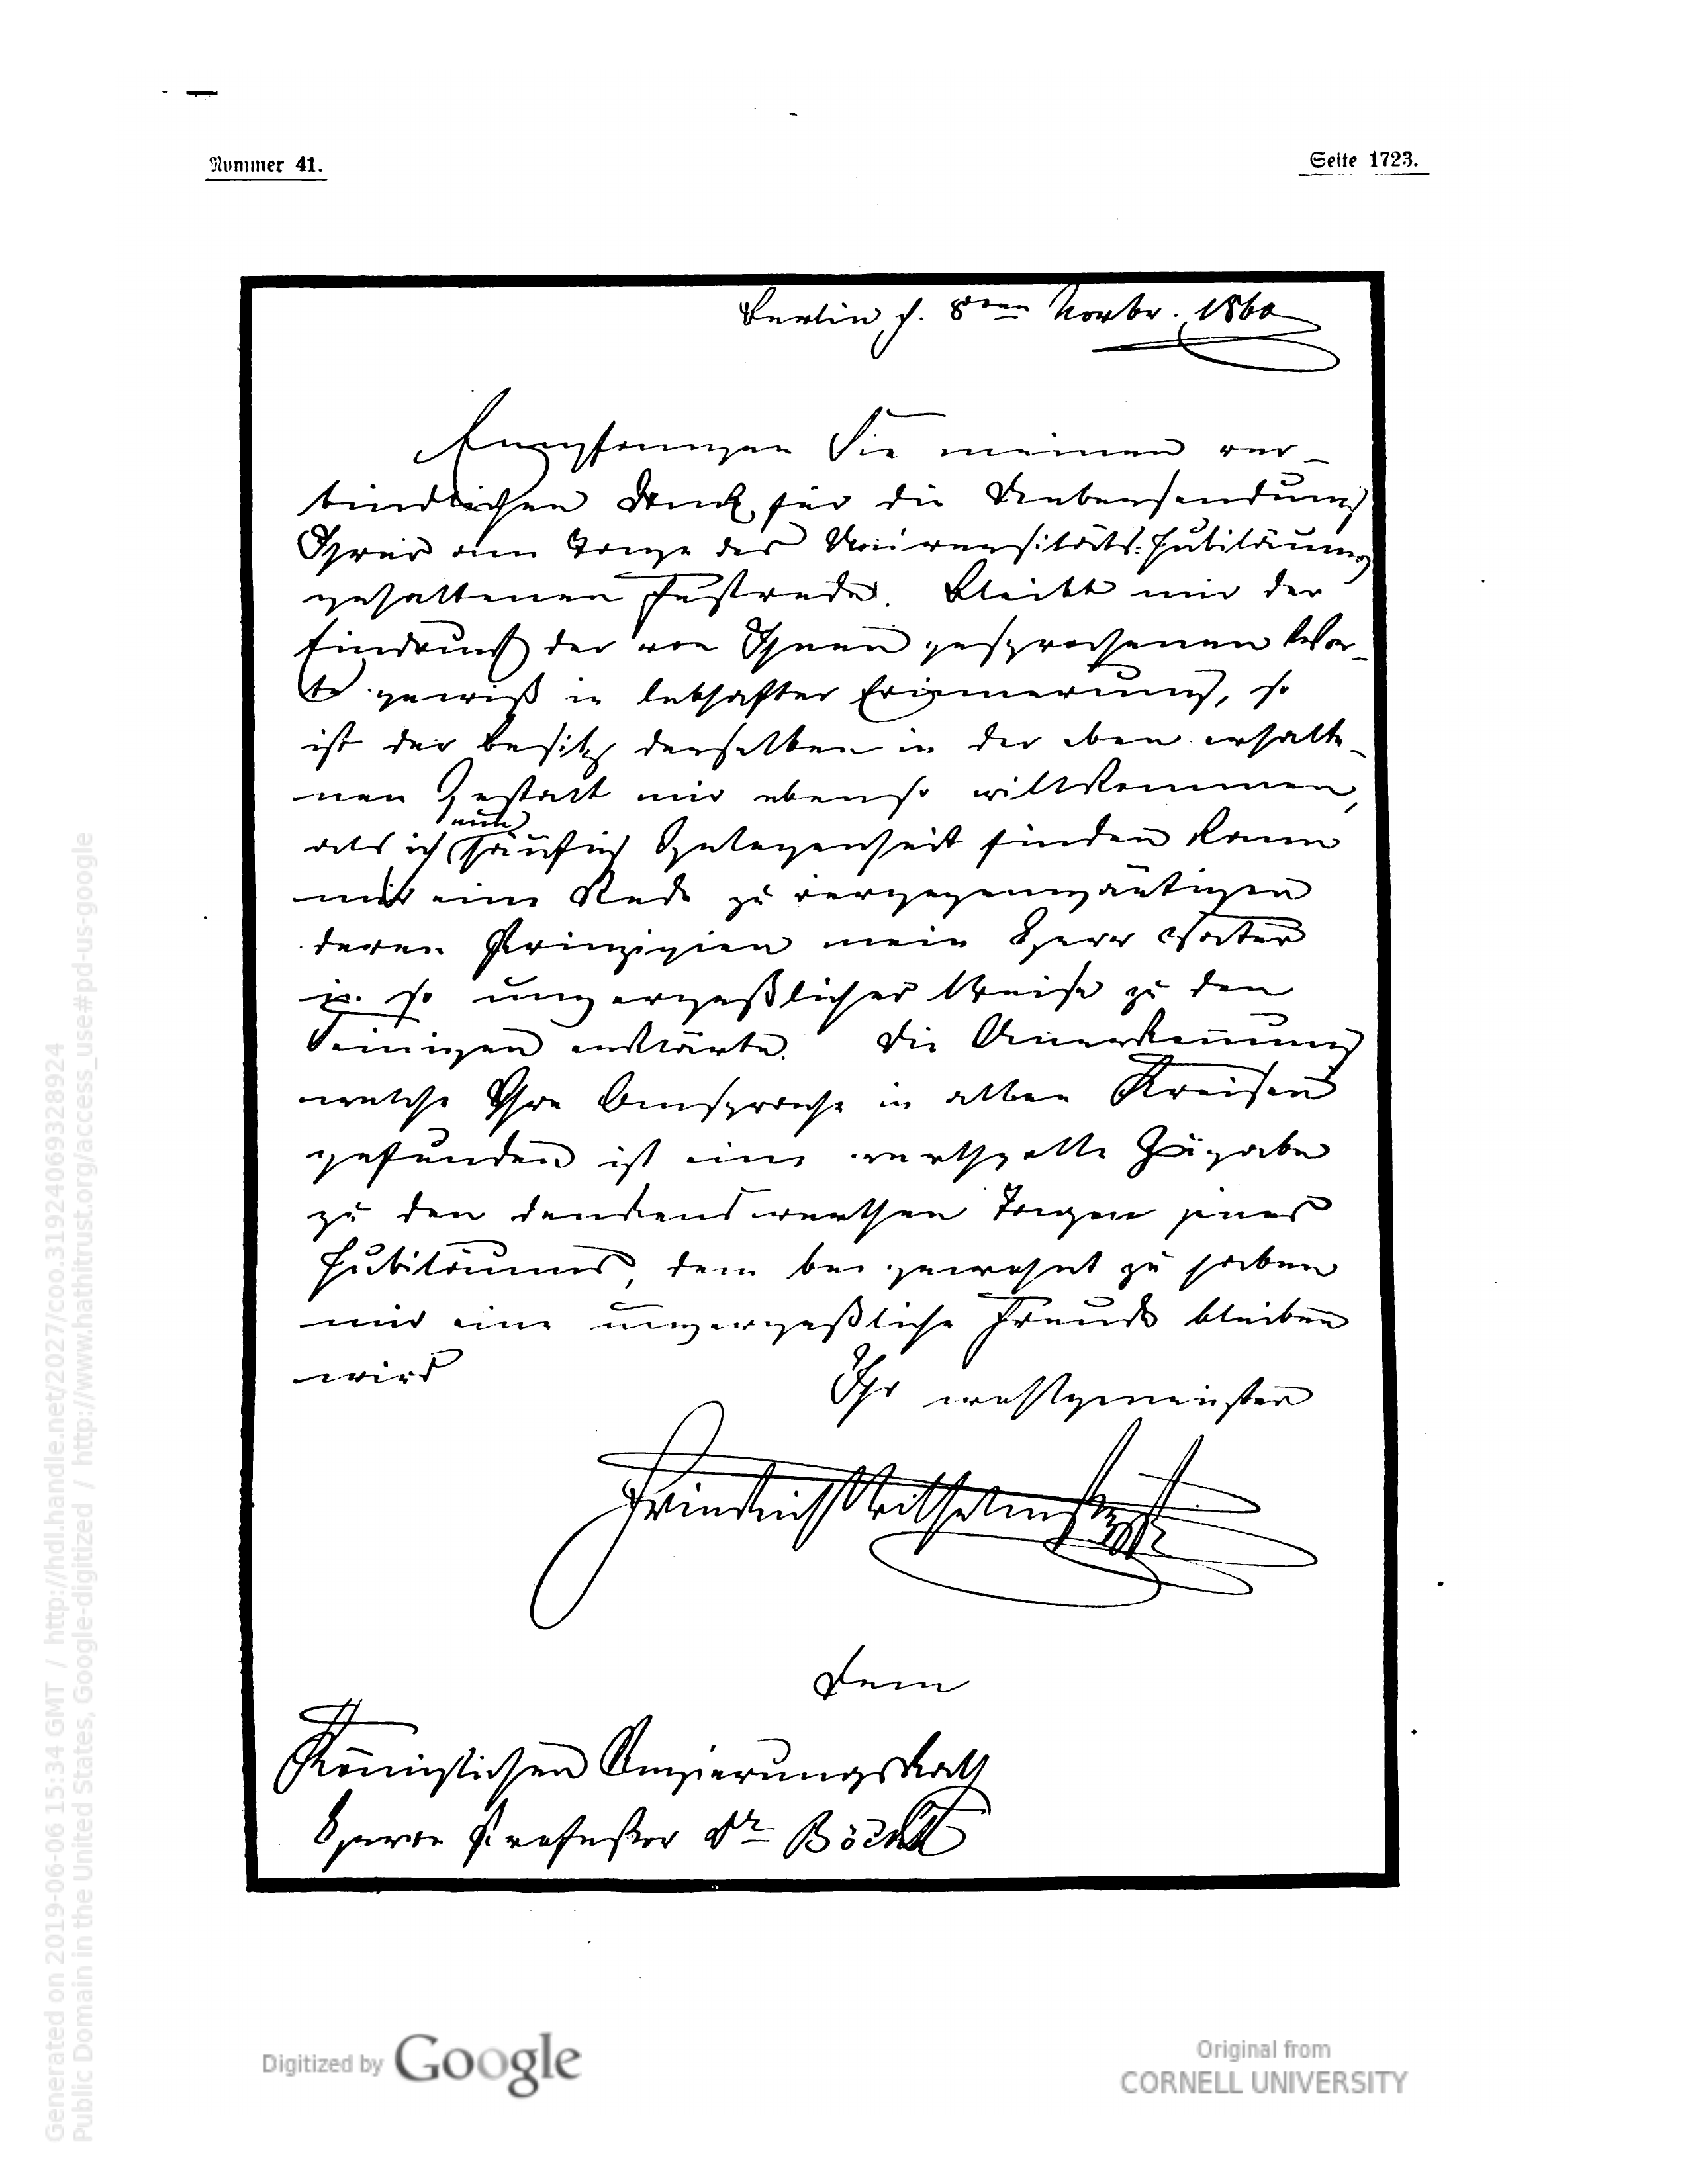 Nummer 41.
Seite 1723.
Berlin d. 8ten Novbr. 1860
Empfangen Sie meinen ver-
bindlichen Dank für die Uebersendung
Ihrer am Tage des Universitäts-Jubiläums
gehaltenen Festrede. Bleibt mir der
Eindruck der von Ihnen gesprochenen Wor-
te gewiß in lebhafter Erinnerung, so
ist der Besitz derselben in der eben erhalte-
nen Gestalt mir ebenso willkommen,
nun
als ich häufig Gelegenheit finden kann
mir eine Rede zu vergegenwärtigen
deren Prinzipien mein Herr Vater
in so unvergeßlicher Weise zu den
Seinigen erklärte. Die Anerkennung
welche Ihre Ansprache in allen Kreisen
gefunden ist eine werthvolle Zugabe
zu den denkenswerthen Tagen jenes
Jubiläums, dem beigewohnt zu haben
mir eine unvergeßliche Freude bleiben
wird
Ihr wohlgeneigter
Friedrich Wilhelm
Dem
Königlichen Regierungsrath
Herrn Professor Dr Böckh
Digitized by Google
Original from
CORNELL UNIVERSITY
Generated on 2019-06-06 15:34 GMT / http://hdl.handle.net/2027/coo.31924069328924
Public Domain in the United States, Google-digitized / http://www.hathitrust.org/access_use#pd-us-google